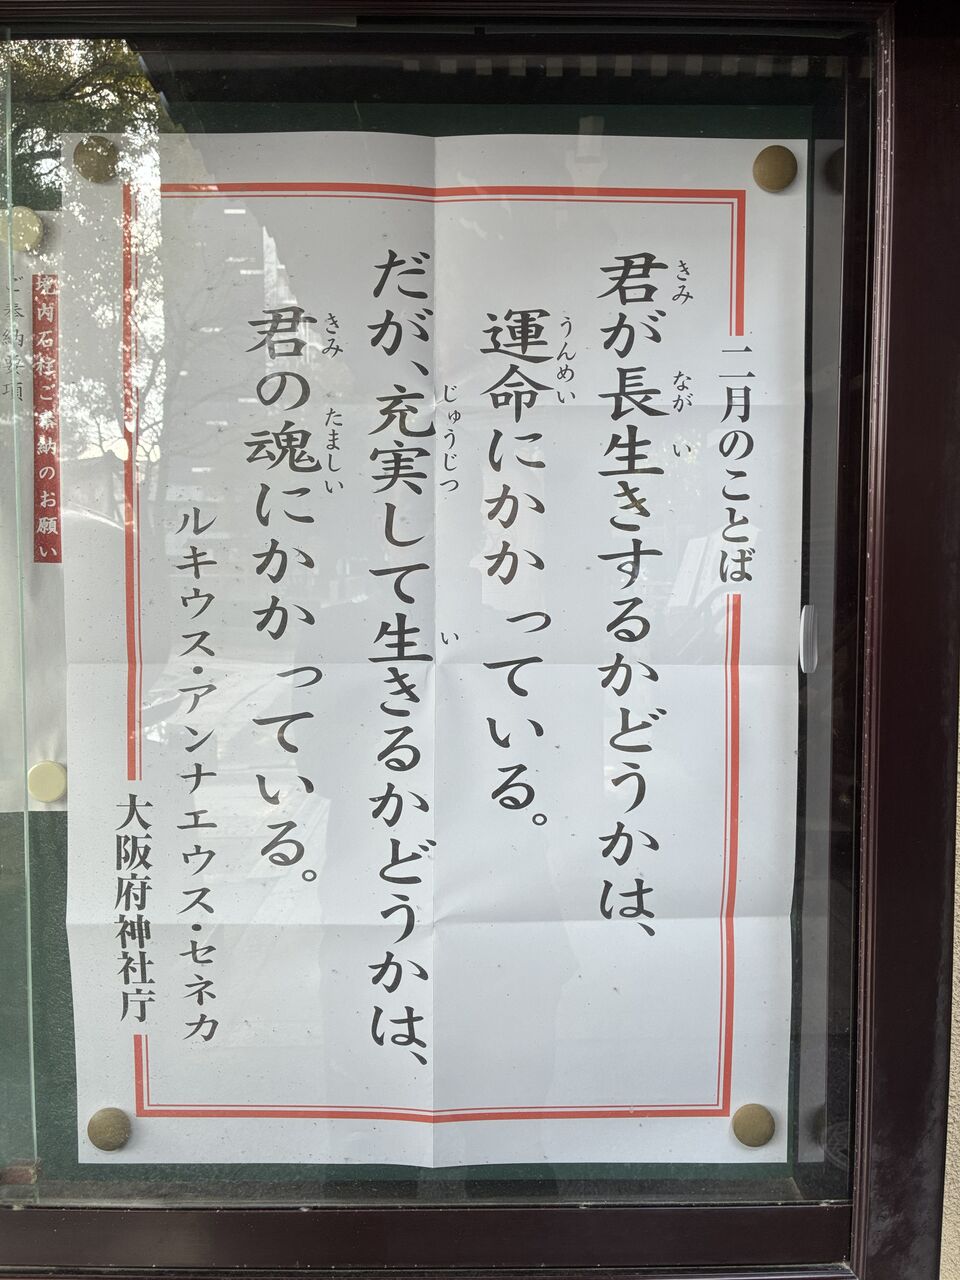 二月のことば
君が長生きするかどうかは、
きみ なが い
運命にかかっている。
うんめい
だが、充実して生きるかどうかは、
じゅうじつ い
君の魂にかかっている。
きみ たましい
ルキウス・アンナエウス・セネカ
大阪府神社庁
境内石柱ご奉納のお願い
ご奉納要項